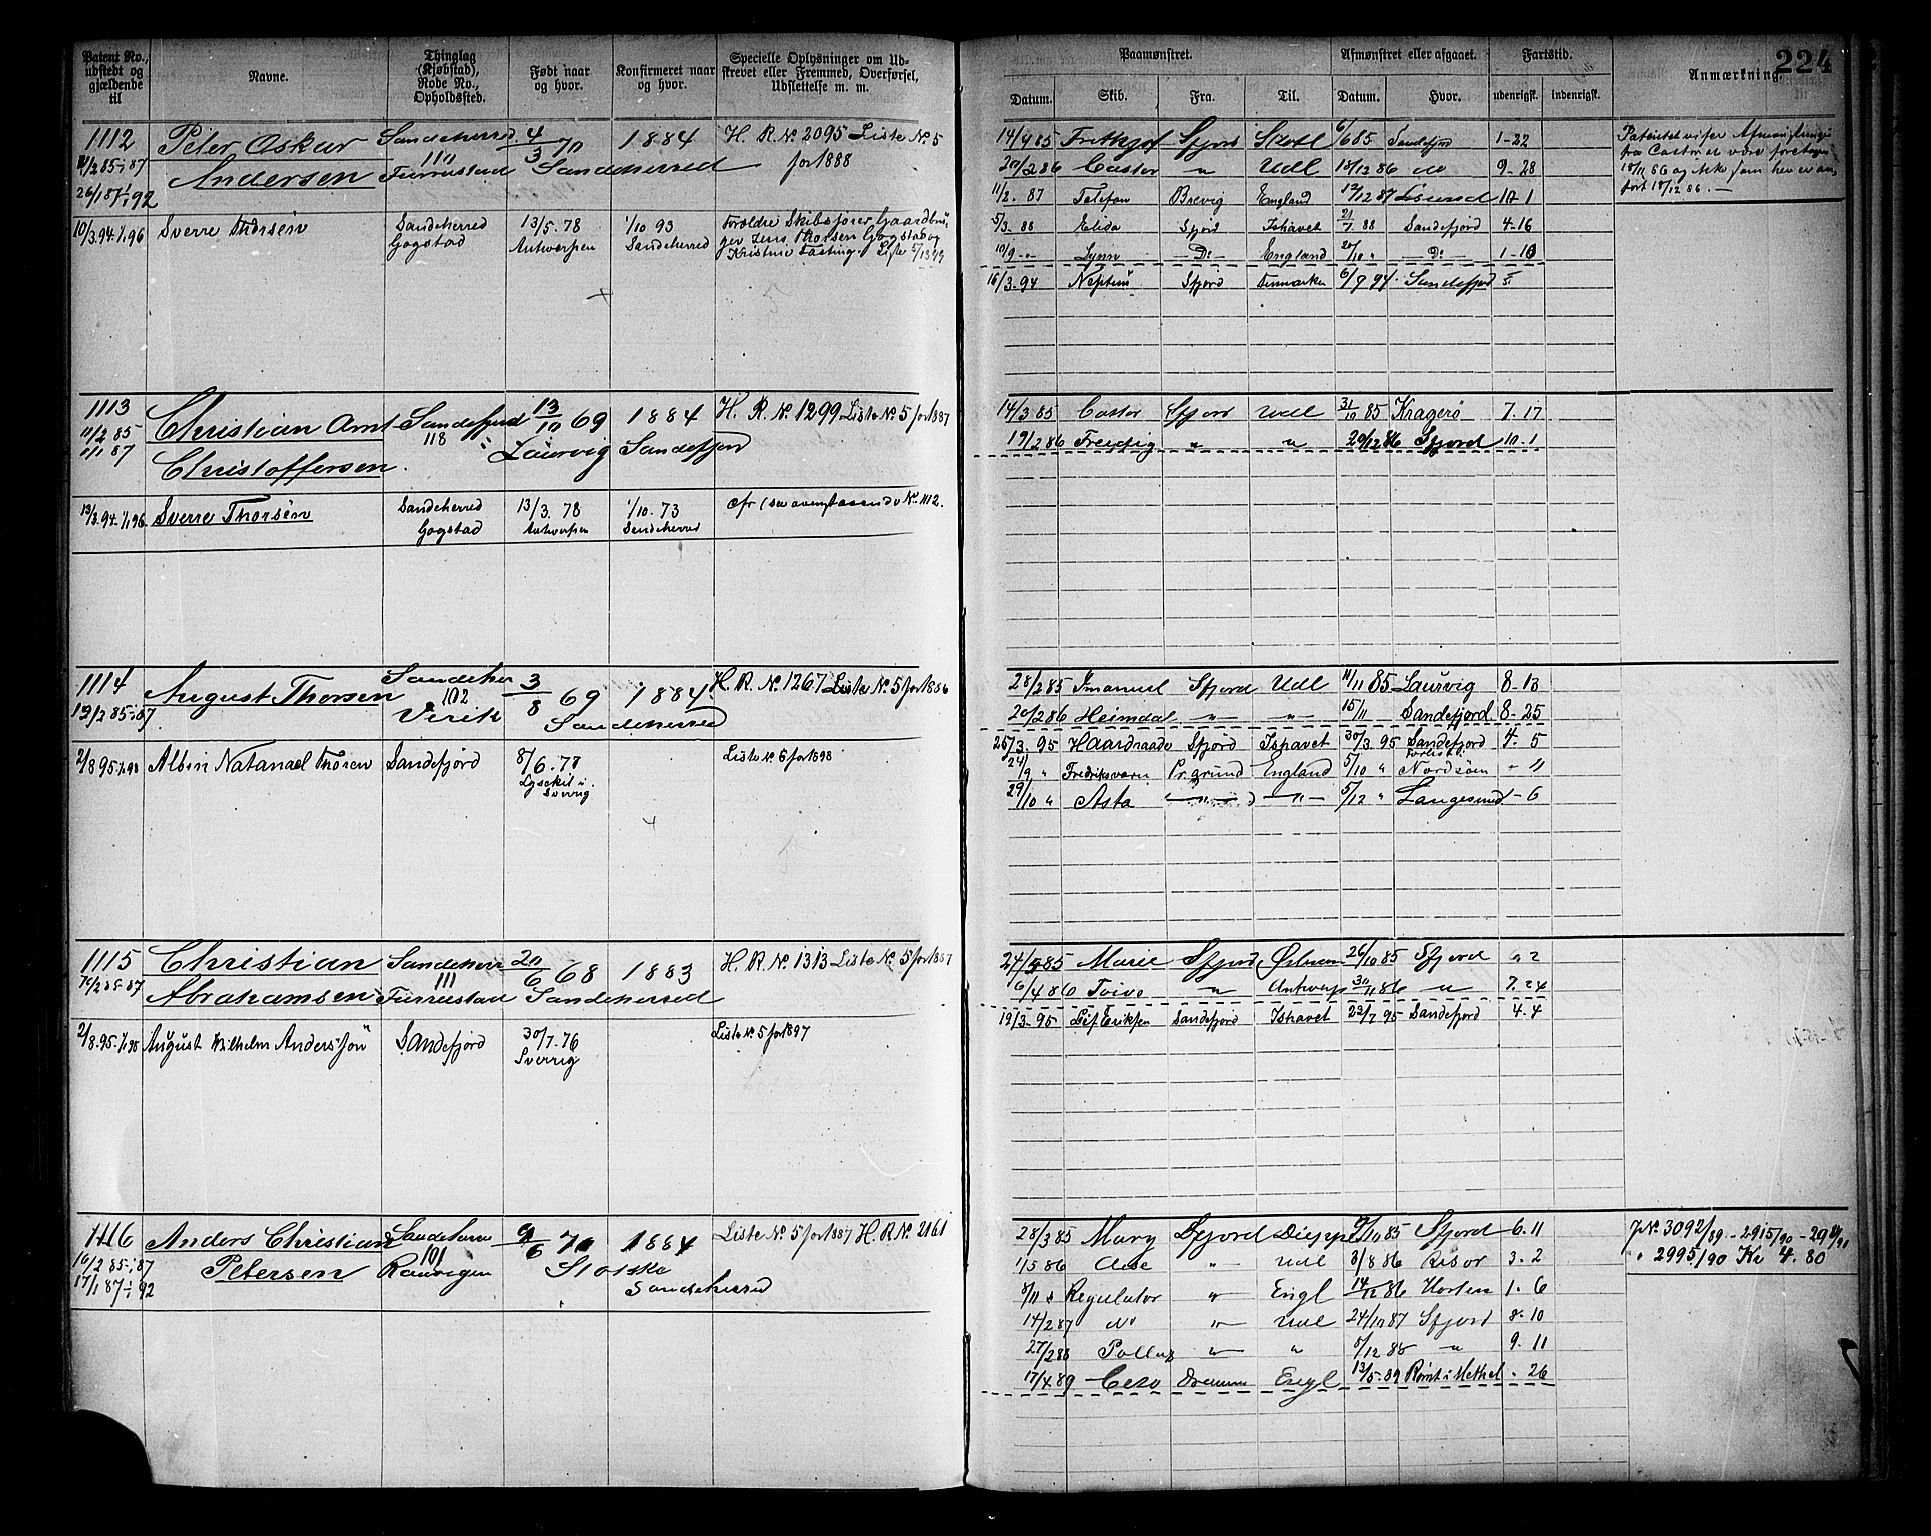 Patent No., udstedt og gjældende til
Navne.
Thinglag (Kjøbstad), Rode No., Opholdssted.
Født naar og hvor.
Konfirmeret naar og hvor.
Specielle Oplysninger om Udskrevet eller Fremmed, Overførsel, Udslettelse m. m.
1112 Peter Oskar Sandeherred 4/3 70 1884 H. R. No 2095 Liste No 5
11/2 85-1/1 87 Andersen 110 Furrustad Sandeherred for 1888
26/1 87-1/1 92
10/3.94.1/1 96 Sverre Thorsen Sandeherred 13/5.78 1/10 93 Forældre Skibsfører, Gaardbru-
Gogstad Antwerpen Sandeherred ger Jens Thorsen Gogstad og
Kristine Fasting Liste
1113 Christian Amt Sandefjord 13/10 69 1884 H. R. No. 1299 Liste No 5 for 1887
11/2 85 118 Laurvig Sandefjord
1/1 87 Christoffersen.
13/3.94.1/1 96 Sverre Thorsen Sandeherred 13/3.78 1/10.73 cfr No. 1112.
Gogstad Antwerpen Sandeherred
1114 August Thorsen Sandeher 3/8 69 1884 H. R. No. 1267 Liste No. 5 for 1886
12/2 85-1/1 87 102 Virik Sandeherred
2/8 95 1/1 98 Albin Natanael Thoren Sandefjord 8/6.78 Liste No 6 for 1898
Lysekil i
Sverrig
1115 Christian Sandeherr 20/6 68 1883 H. R. No. 1313 Liste No 5 for 1887
Abrahamsen 111 Furrustad Sandeherred
2/8.95.1/1 98 August Wilhelm Andersson Sandefjord 30/7.76 Liste No 5 for 1897
Sverrig
1116 Anders Christian Sandeherre 9/6 70 1884 Liste No. 5 for 1887 H. R. No. 2161
16/2 85-1/1 87 Petersen 101 Ranvigen Slotske
17/1 87-1/1 92 Sandeherred
224
Paamønstret.
Afmønstret eller afgaaet.
Fartstid.
Anmærkning.
Datum. Skib. Fra. Til. Datum. Hvor. udenrigsk. indenrigsk.
14/4 85 Frithjof Sfjord Skotl 6/6 85 Sandefjord 1-22
20/2 86 Castor " Udl 18/12 86 do 9-28
11/2.87 Telefon Brevig England 12/12 87 10 1
5/3.88 Elida Sfjord Ishavet 21/7 88 Sandefjord 4-16
10/9 -"- Lynn -Do- England 20/10 " -Do- 1-10
16/3.94 Neptun Sfjord Danmarka 6/9 94. Sandefjord 5.
Patentet viser Afmønstringen
fra Castor at være foretagen
18/11 86 og ikke som her er an-
ført 18/12 86. —
14/3 85 Castor Sfjord Udl 31/10 85 Kragerø 7.17
19/2 86 Freidig " " 20/12 86 Sfjord 10.1
28/2 85 Imanuel Sfjord Udl 11/11 85 Laurvig 8-13
20/2 86 Heimdal -"- -"- 15/11 Sandefjord. 8-25
26/3.95 Haardraade Sfjord Ishavet 30/3 95 Sandefjord 4. 5
24/9 " Fredriksværn Pr.grund England 5/10 " Forlist i Nordsøen - 11
29/10 " Asta -"- -"- 5/12 " Langesund - 6
24/3 85 Marie Sfjord 26/10 85 Sfjord
6/4 86 Toivo " Antwerp 30/11 86 " 7.24
19/3.95 Leif Eriksen Sandefjord Ishavet 23/7 95 Sandefjord 4.4
28/3 85 Mary Sfjord Dieppe 9/10 85 Sfjord 6.11
1/5 86 " Udl 3/8 86 Risør 3.2
8/11 " Regulator " Engl 14/12 86 Horten 1.6
14/2 87 Do " Udl 24/10 87 Sfjord 8.10
27/2 88 Pollux " " 8/12 88 " 9.11
17/4 89 Cero Dramm Engl 13/5-89 Rømt i Methel ". 26
JNo. 3092/89 - 2915/90 -
" 2995/90 Kr 4.80